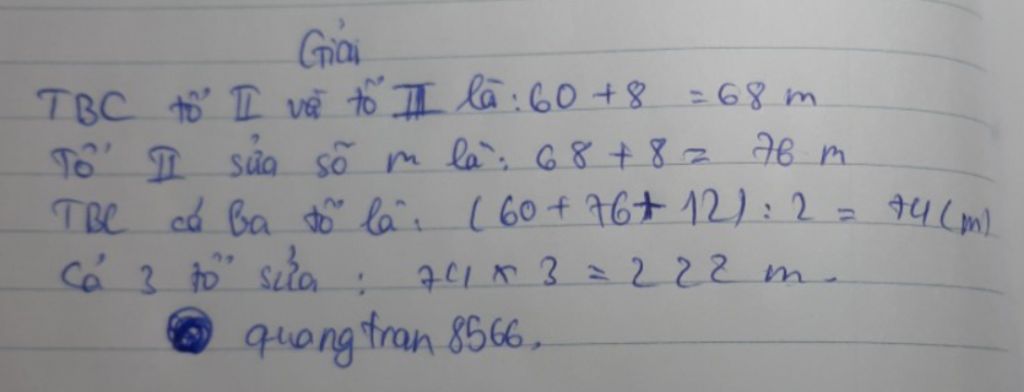 Giải
TBC tổ II và tổ III là: 60 + 8 = 68 m
Tổ II sửa số m là: 68 + 8 = 76 m
TBC cả Ba tổ là: (60 + 76 + 12) : 2 = 74 (m)
Cả 3 tổ sửa : 74 x 3 = 222 m.
quang tran 8566.